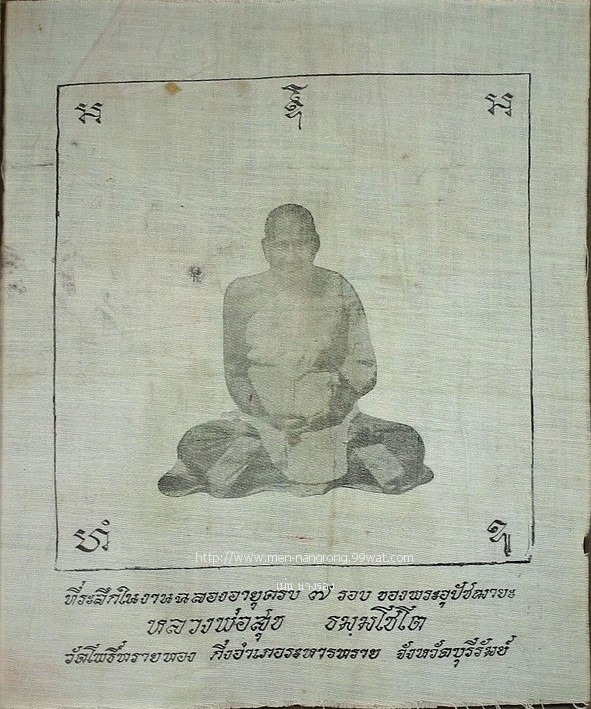 http://www.men-nangrong.99wat.com
เมน นางรอง
ที่ระลึกในงานฉลองอายุครบ ๗ รอบ ของพระอุปัชฌายะ
หลวงพ่อสุข ธมฺมโชโต
วัดโพธิ์ทรายทอง กิ่งอำเภอละหารทราย จังหวัดบุรีรัมย์